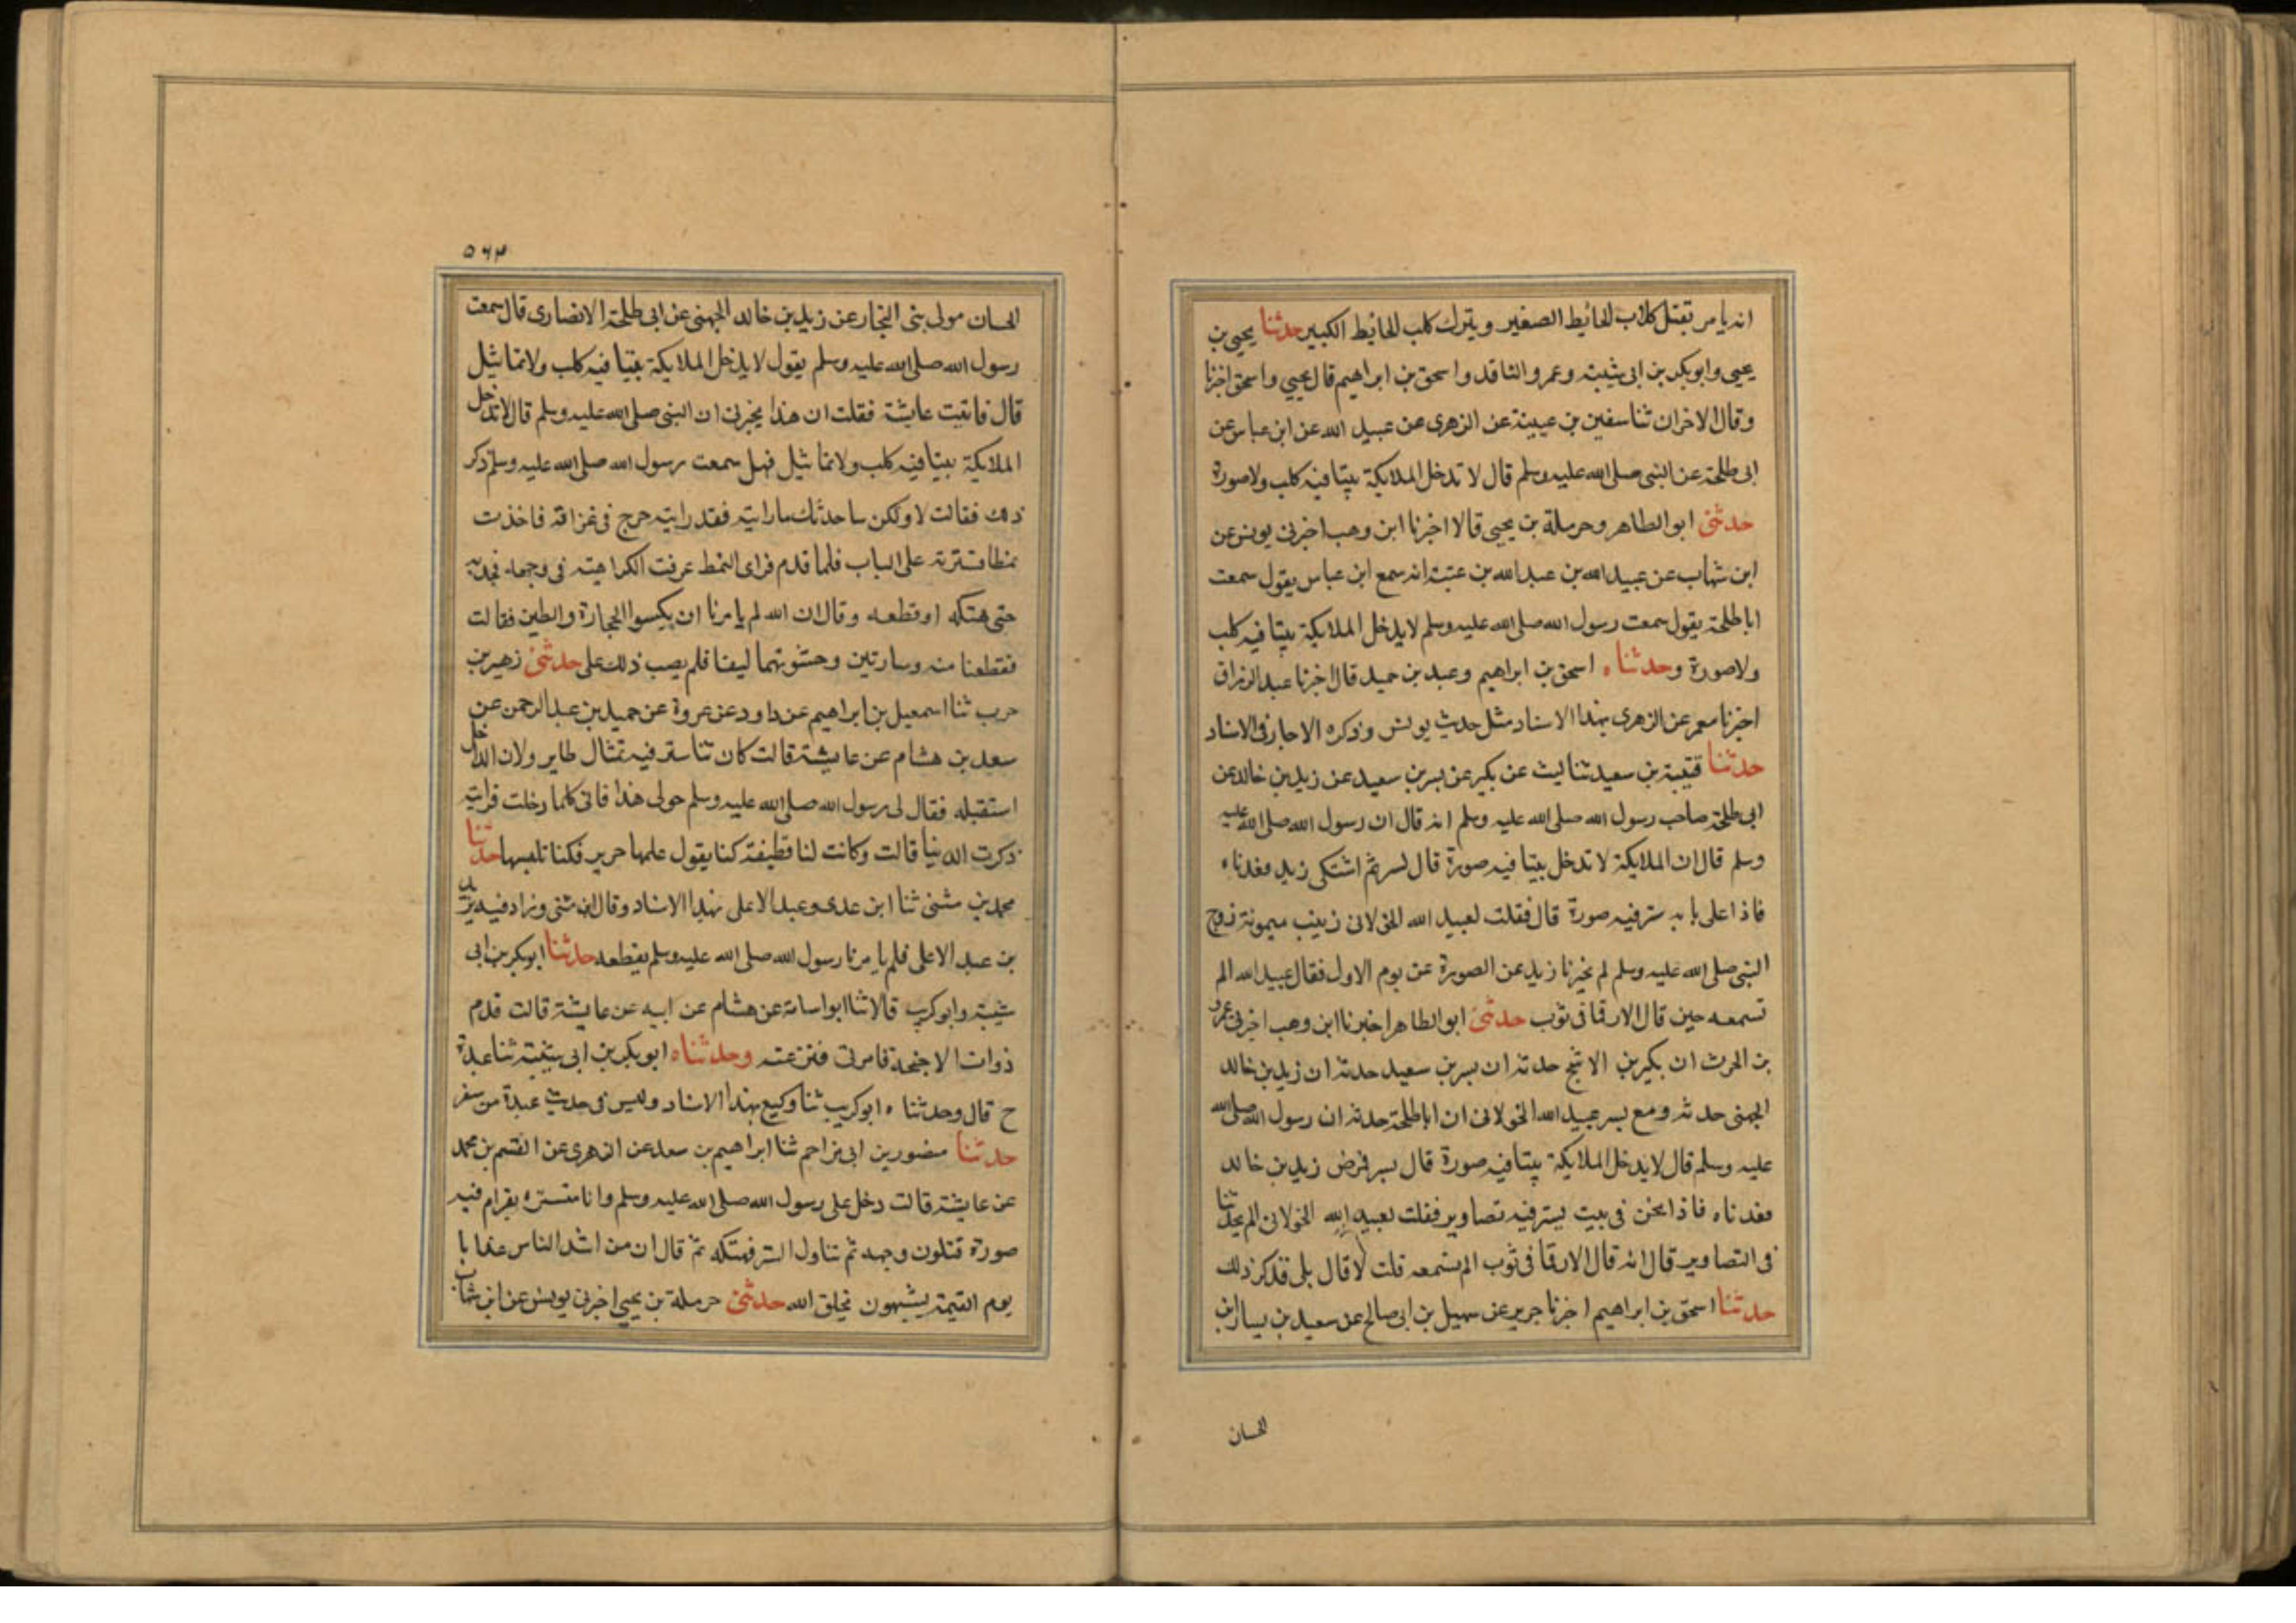 انه يامر بقتل كلاب الحائيط الصغير ويترك كلب الحائيط الكبير حدثنا يحيى بن
يحيى وابوبكر بن ابى شيبة وعمرو الناقد واسحق بن ابراهيم قال يحيى واسحق اخبرنا
وقال الاخران ثنا سفين بن عيينة عن الزهرى عن عبيد الله عن ابن عباس عن
ابى طلحة عن النبى صلى الله عليه وسلم قال لا تدخل الملايكة بيتا فيه كلب ولا صورة
حدثنى ابو الطاهر وحرملة بن يحيى قالا اخبرنا ابن وهب اخبرنى يونس عن
ابن شهاب عن عبيد الله بن عبد الله بن عتبة انه سمع ابن عباس يقول سمعت
ابا طلحة يقول سمعت رسول الله صلى الله عليه وسلم لا يدخل الملايكة بيتا فيه كلب
ولا صورة وحدثناه اسحق بن ابراهيم وعبد بن حميد قال اخبرنا عبد الرزاق
اخبرنا معمر عن الزهرى بهذا الاسناد مثل حديث يونس وذكره الاخبار فى الاسناد
حدثنا قتيبة بن سعيد ثنا ليث عن بكير عن بسر بن سعيد عن زيد بن خالد عن
ابى طلحة صاحب رسول الله صلى الله عليه وسلم انه قال ان رسول الله صلى الله عليه
وسلم قال ان الملايكة لا تدخل بيتا فيه صورة قال بسر ثم اشتكى زيد فعدناه
فاذا على بابه ستر فيه صورة قال فقلت لعبيد الله الخولانى زينب ميمونة زوج
النبى صلى الله عليه وسلم لم يخبرنا زيد عن الصورة عن يوم الاول فقال عبيد الله الم
تسمعه حين قال الا رقما فى ثوب حدثنى ابو الطاهر اخبرنا ابن وهب اخبرنى عمرو
بن الحرث ان بكير بن الاشج حدثه ان بسر بن سعيد حدثه ان زيد بن خالد
الجهنى حدثه ومع بسر عبيد الله الخولانى ان ابا طلحة حدثه ان رسول الله صلى الله
عليه وسلم قال لا يدخل الملايكة بيتا فيه صورة قال بسر فمرض زيد بن خالد
فعدناه فاذا نحن فى بيت بستر فيه تصاوير فقلت لعبيد الله الخولانى الم يحدثنا
فى التصاوير قال انه قال الا رقما فى ثوب الم تسمعه قلت لا قال بلى قد ذكر ذلك
حدثنا اسحق بن ابراهيم اخبرنا جرير عن سهيل بن ابى صالح عن سعيد بن يسار ابن
الحسان
٥٦٣
الحسان مولى بنى النجار عن زيد بن خالد الجهنى عن ابى طلحة الانصارى قال سمعت
رسول الله صلى الله عليه وسلم يقول لا يدخل الملايكة بيتا فيه كلب ولا تماثيل
قال فاتيت عايشة فقلت ان هذا يخبرنى ان النبى صلى الله عليه وسلم قال لا تدخل
الملايكة بيتا فيه كلب ولا تماثيل فهل سمعت رسول الله صلى الله عليه وسلم ذكر
ذلك فقالت لا ولكن ساحدثك ما رايته فعل رايته خرج فى غزاته فاخذت
نمطا فسترته على الباب فلما قدم فراى النمط عرفت الكراهية فى وجهه فجذبه
حتى هتكه او قطعه وقال ان الله لم يامرنا ان يكسوا الحجارة والطين فقالت
فقطعنا منه وسادتين وحشوتهما ليفا فلم يصب ذلك على حدثنى زهير بن
حرب ثنا اسمعيل بن ابراهيم عن داود عن عروة عن حميد بن عبد الرحمن عن
سعد بن هشام عن عايشة قالت كان لنا ستر فيه تمثال طاير ولان الداخل
استقبله فقال لى رسول الله صلى الله عليه وسلم حولى هذا فانى كلما دخلت فرايته
ذكرت الدنيا قالت وكانت لنا قطيفة كنا يقول علمها حرير فكنا نلبسها حدثنا
محمد بن مثنى ثنا ابن عدى وعبد الاعلى بهذا الاسناد وقال ابن مثنى وزاد فيه يريد
بن عبد الاعلى فلم يامرنا رسول الله صلى الله عليه وسلم بقطعه حدثنا ابوبكر بن ابى
شيبة وابو كريب قالا ثنا ابو اسامة عن هشام عن ابيه عن عايشة قالت قدم
ذوات الاجنحة فامرنى فنزعته وحدثناه ابو بكر بن ابى شيبة ثنا عبدة
ح قال وحدثناه ابو كريب ثنا وكيع بهذا الاسناد وليس فى حديث عبدة من سفر
حدثنا منصور بن ابى مزاحم ثنا ابراهيم بن سعد عن الزهرى عن القسم بن محمد
عن عايشة قالت دخل على رسول الله صلى الله عليه وسلم وانا متستره بقرام فيه
صورة فتلون وجهه ثم تناول الستر فهتكه ثم قال ان من اشد الناس عذابا
يوم القيمة يشبهون بخلق الله حدثنى حرملة بن يحيى اخبرنى يونس عن ابن شهاب